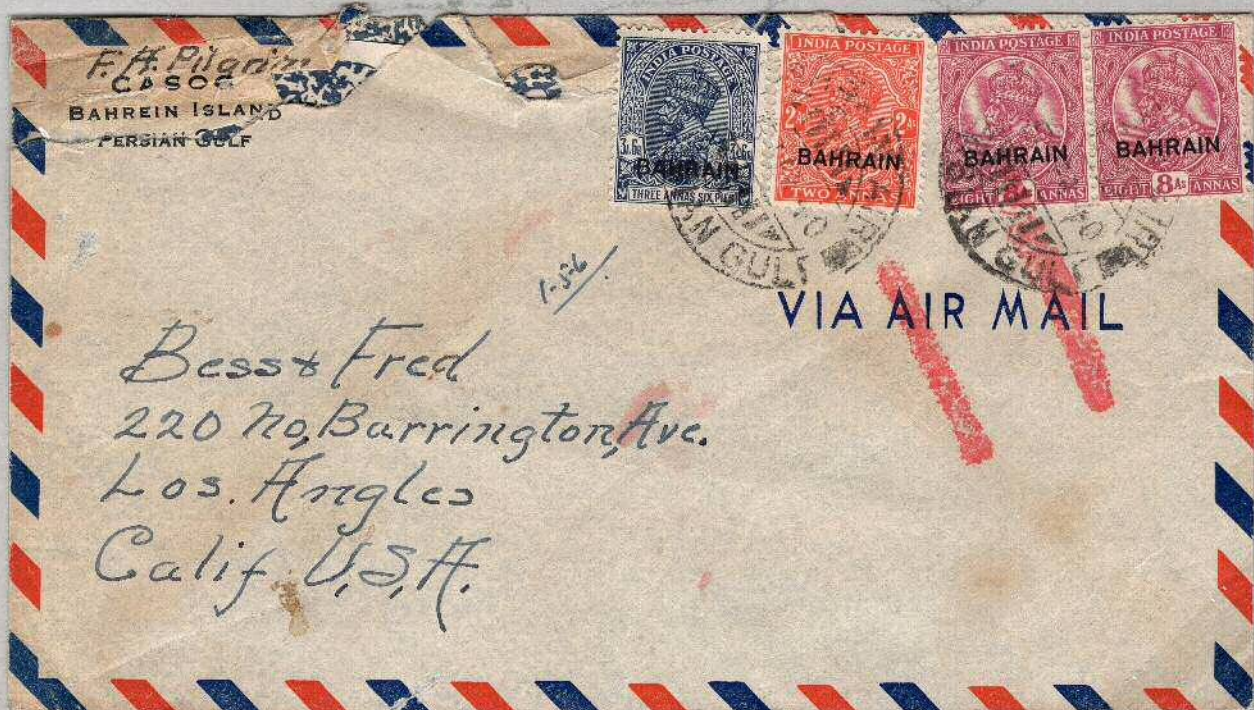 F. A. Pilgrim
CASOC
BAHREIN ISLAND
PERSIAN GULF
INDIA POSTAGE
BAHRAIN
THREE ANNAS SIX PIES
INDIA POSTAGE
2As 2As
BAHRAIN
TWO ANNAS
INDIA POSTAGE
BAHRAIN
EIGHT ANNAS
INDIA POSTAGE
BAHRAIN
EIGHT 8As ANNAS
1-5-6
VIA AIR MAIL
Bess & Fred
220 No, Barrington, Ave.
Los. Angles
Calif U,S,A.